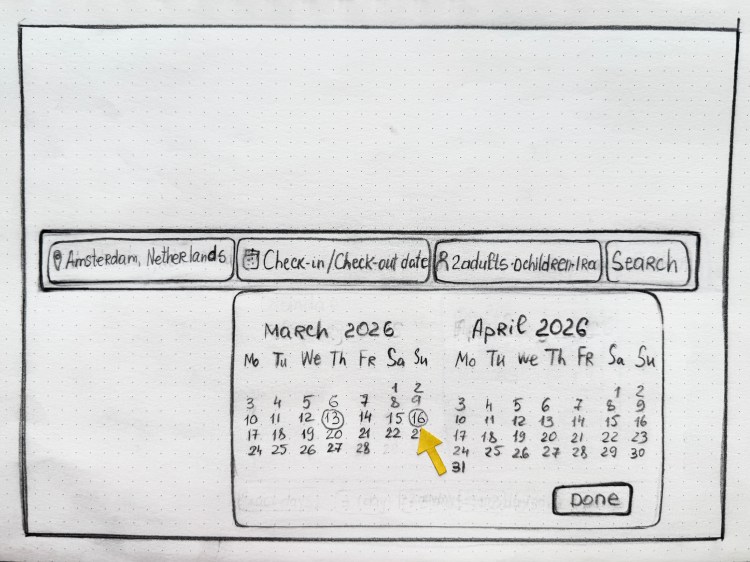 Amsterdam, Netherlands
Check-in/Check-out date
2adults·0children·1ra
Search
March 2026
Mo Tu We Th Fr Sa Su
1 2
3 4 5 6 7 8 9
10 11 12 13 14 15 16
17 18 19 20 21 22
24 25 26 27 28
April 2026
Mo Tu We Th Fr Sa Su
1 2
3 4 5 6 7 8 9
10 11 12 13 14 15 16
17 18 19 20 21 22 23
24 25 26 27 28 29 30
31
Done